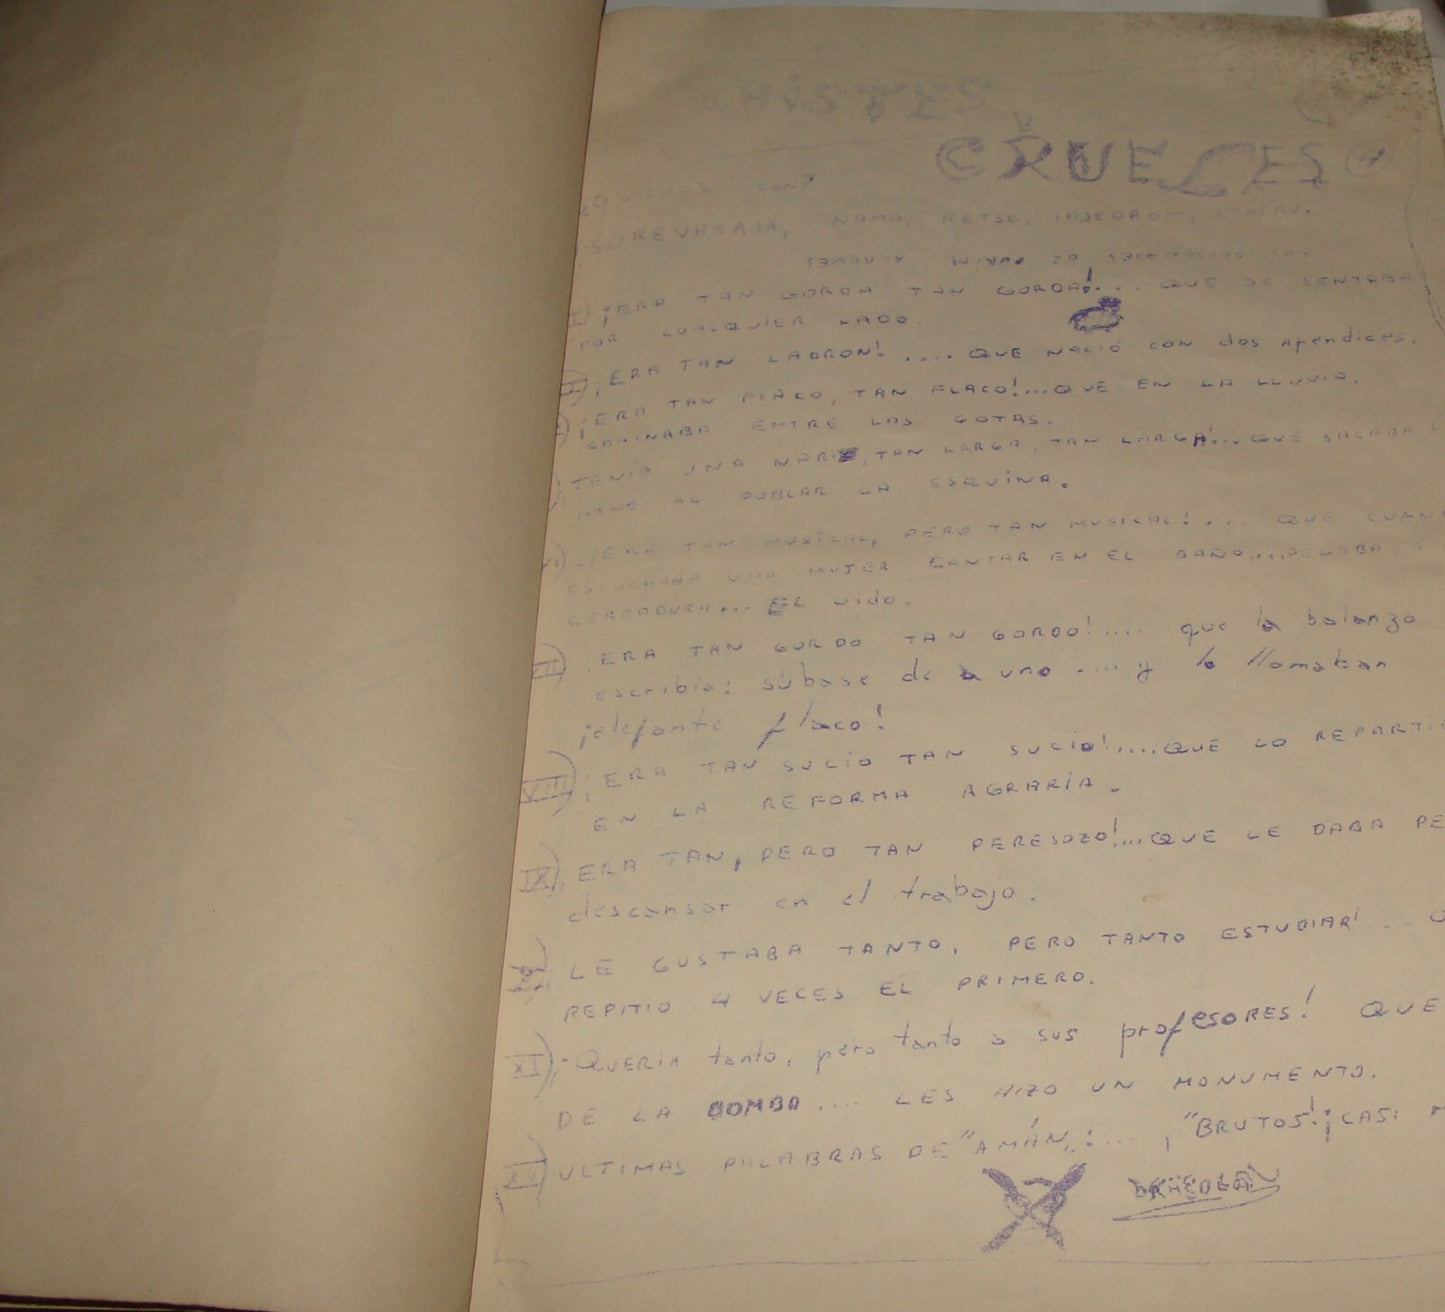 CRUELES
¿QUIENES SON?
SOREVASAJA, NAMA, RETSE, IAJEDROM,
MIRIM ALREVES
¡ERA TAN GORDA TAN GORDA!... QUE SE SENTABA
POR CUALQUIER LADO.
¡ERA TAN LADRON!.... QUE NACIÓ CON dos Apendices.
¡ERA TAN FLACO, TAN FLACO!...QUE EN LA LLUVIA.
CAMINABA ENTRE LAS GOTAS.
TENIA UNA NARIZ, TAN LARGA, TAN LARGA!...QUE SACABA
MANO AL DOBLAR LA ESQUINA.
VI) ¡ERA TAN MUSICAL, PERO TAN MUSICAL!... QUE
ESCUCHABA UNA MUJER CANTAR EN EL BAÑO,...PEGABA A
CERRADURA... EL oido.
VII) ¡ERA TAN GORDO TAN GORDO!.... que la balanza
escribia: súbase de a uno .... y lo llamaban
¡elefante flaco!
VIII) ¡ERA TAN SUCIO TAN SUCIO!....QUE LO
EN LA REFORMA AGRARIA.
IX) ¡ERA TAN, PERO TAN PERESOZO!...QUE LE DABA
descansar en el trabajo.
X) LE GUSTABA TANTO, PERO TANTO ESTUDIAR!...
REPITIO 4 VECES EL PRIMERO.
XI) ¡QUERIA tanto, pero tanto a sus profESORES! QUE
DE LA BOMBA.... LES HIZO UN MONUMENTO.
XII) ULTIMAS PALABRAS DE "AMÁN": ...., "BRUTOS!¡CASI